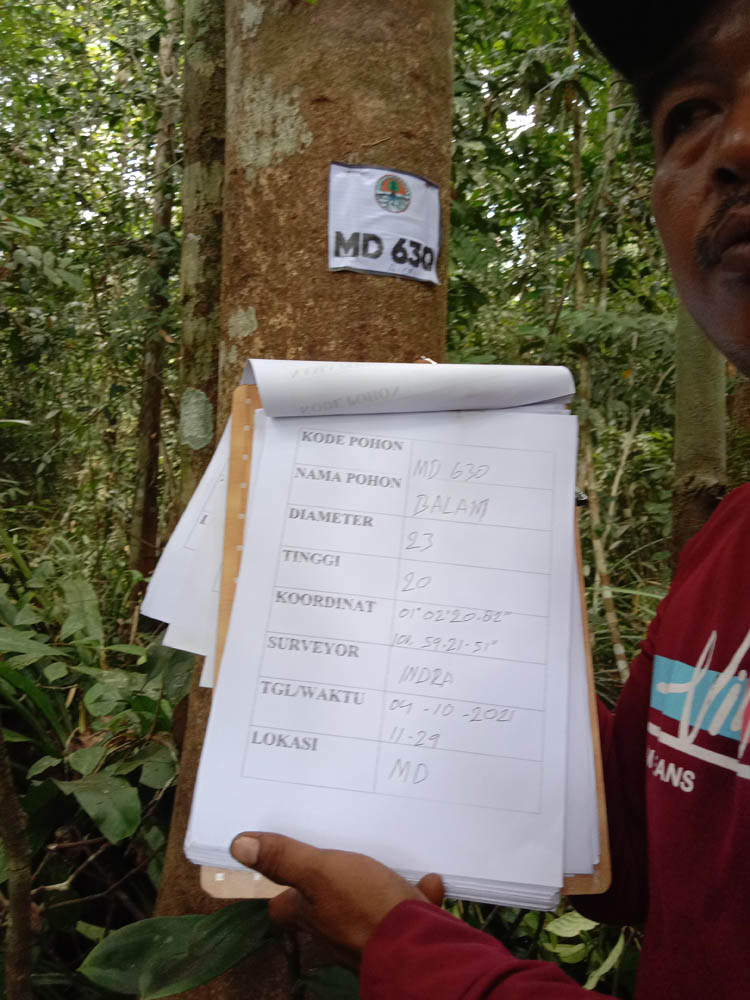 MD 630
KODE POHON
KODE POHON MD 630
NAMA POHON BALAM
DIAMETER 23
TINGGI 20
KOORDINAT 01°02'20.52"
101.59.21.51"
SURVEYOR INDRA
TGL/WAKTU 04-10-2021
11-29
LOKASI MD
FANS